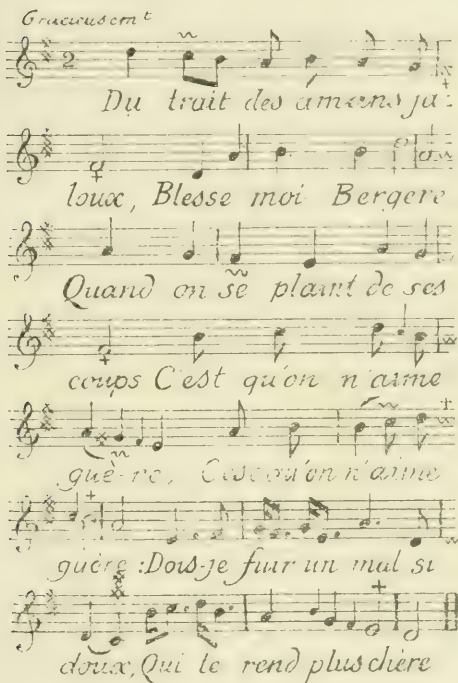 Gracieusemt
2
Du trait des amans ja-
loux, Blesse moi Bergere
Quand on se plaint de ses
coups C'est qu'on n'aime
guè-re, C'est qu'on n'aime
guère : Dois-je fuir un mal si
doux, Qui te rend plus chère